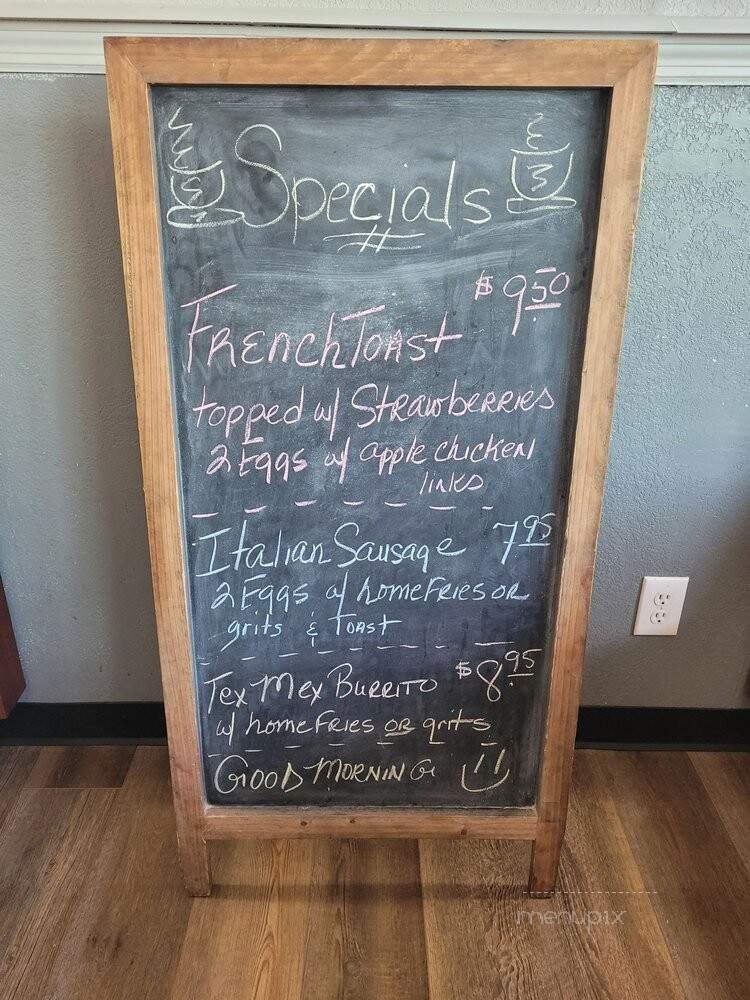 Specials
$ 9.50
French Toast
topped w/ Strawberries
2 Eggs w/ apple chicken
links
Italian Sausage 7.95
2 Eggs w/ home Fries or
grits & Toast
Tex Mex Burrito $8.95
w/ home Fries or grits
Good Morning
menupix